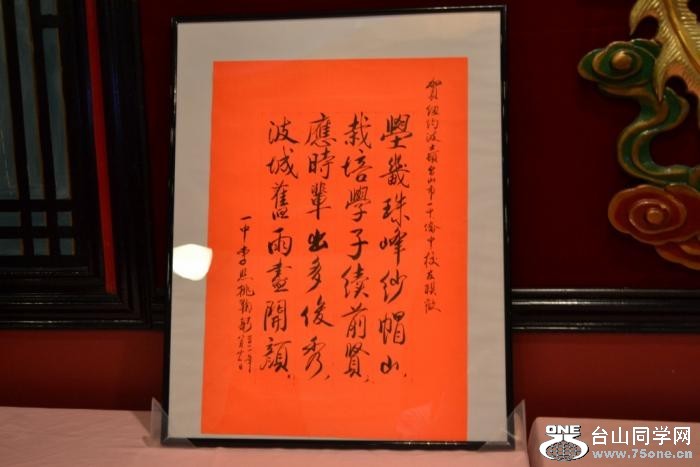 賀纽约波士顿台山市一中僑中校友聯歡
壆畿珠峰紗帽山
栽培學子续前賢、
應時輩出多俊秀、
波城舊雨盡開顔、
一中李
鞠躬
ONE
台山同学网
www.75one.cn